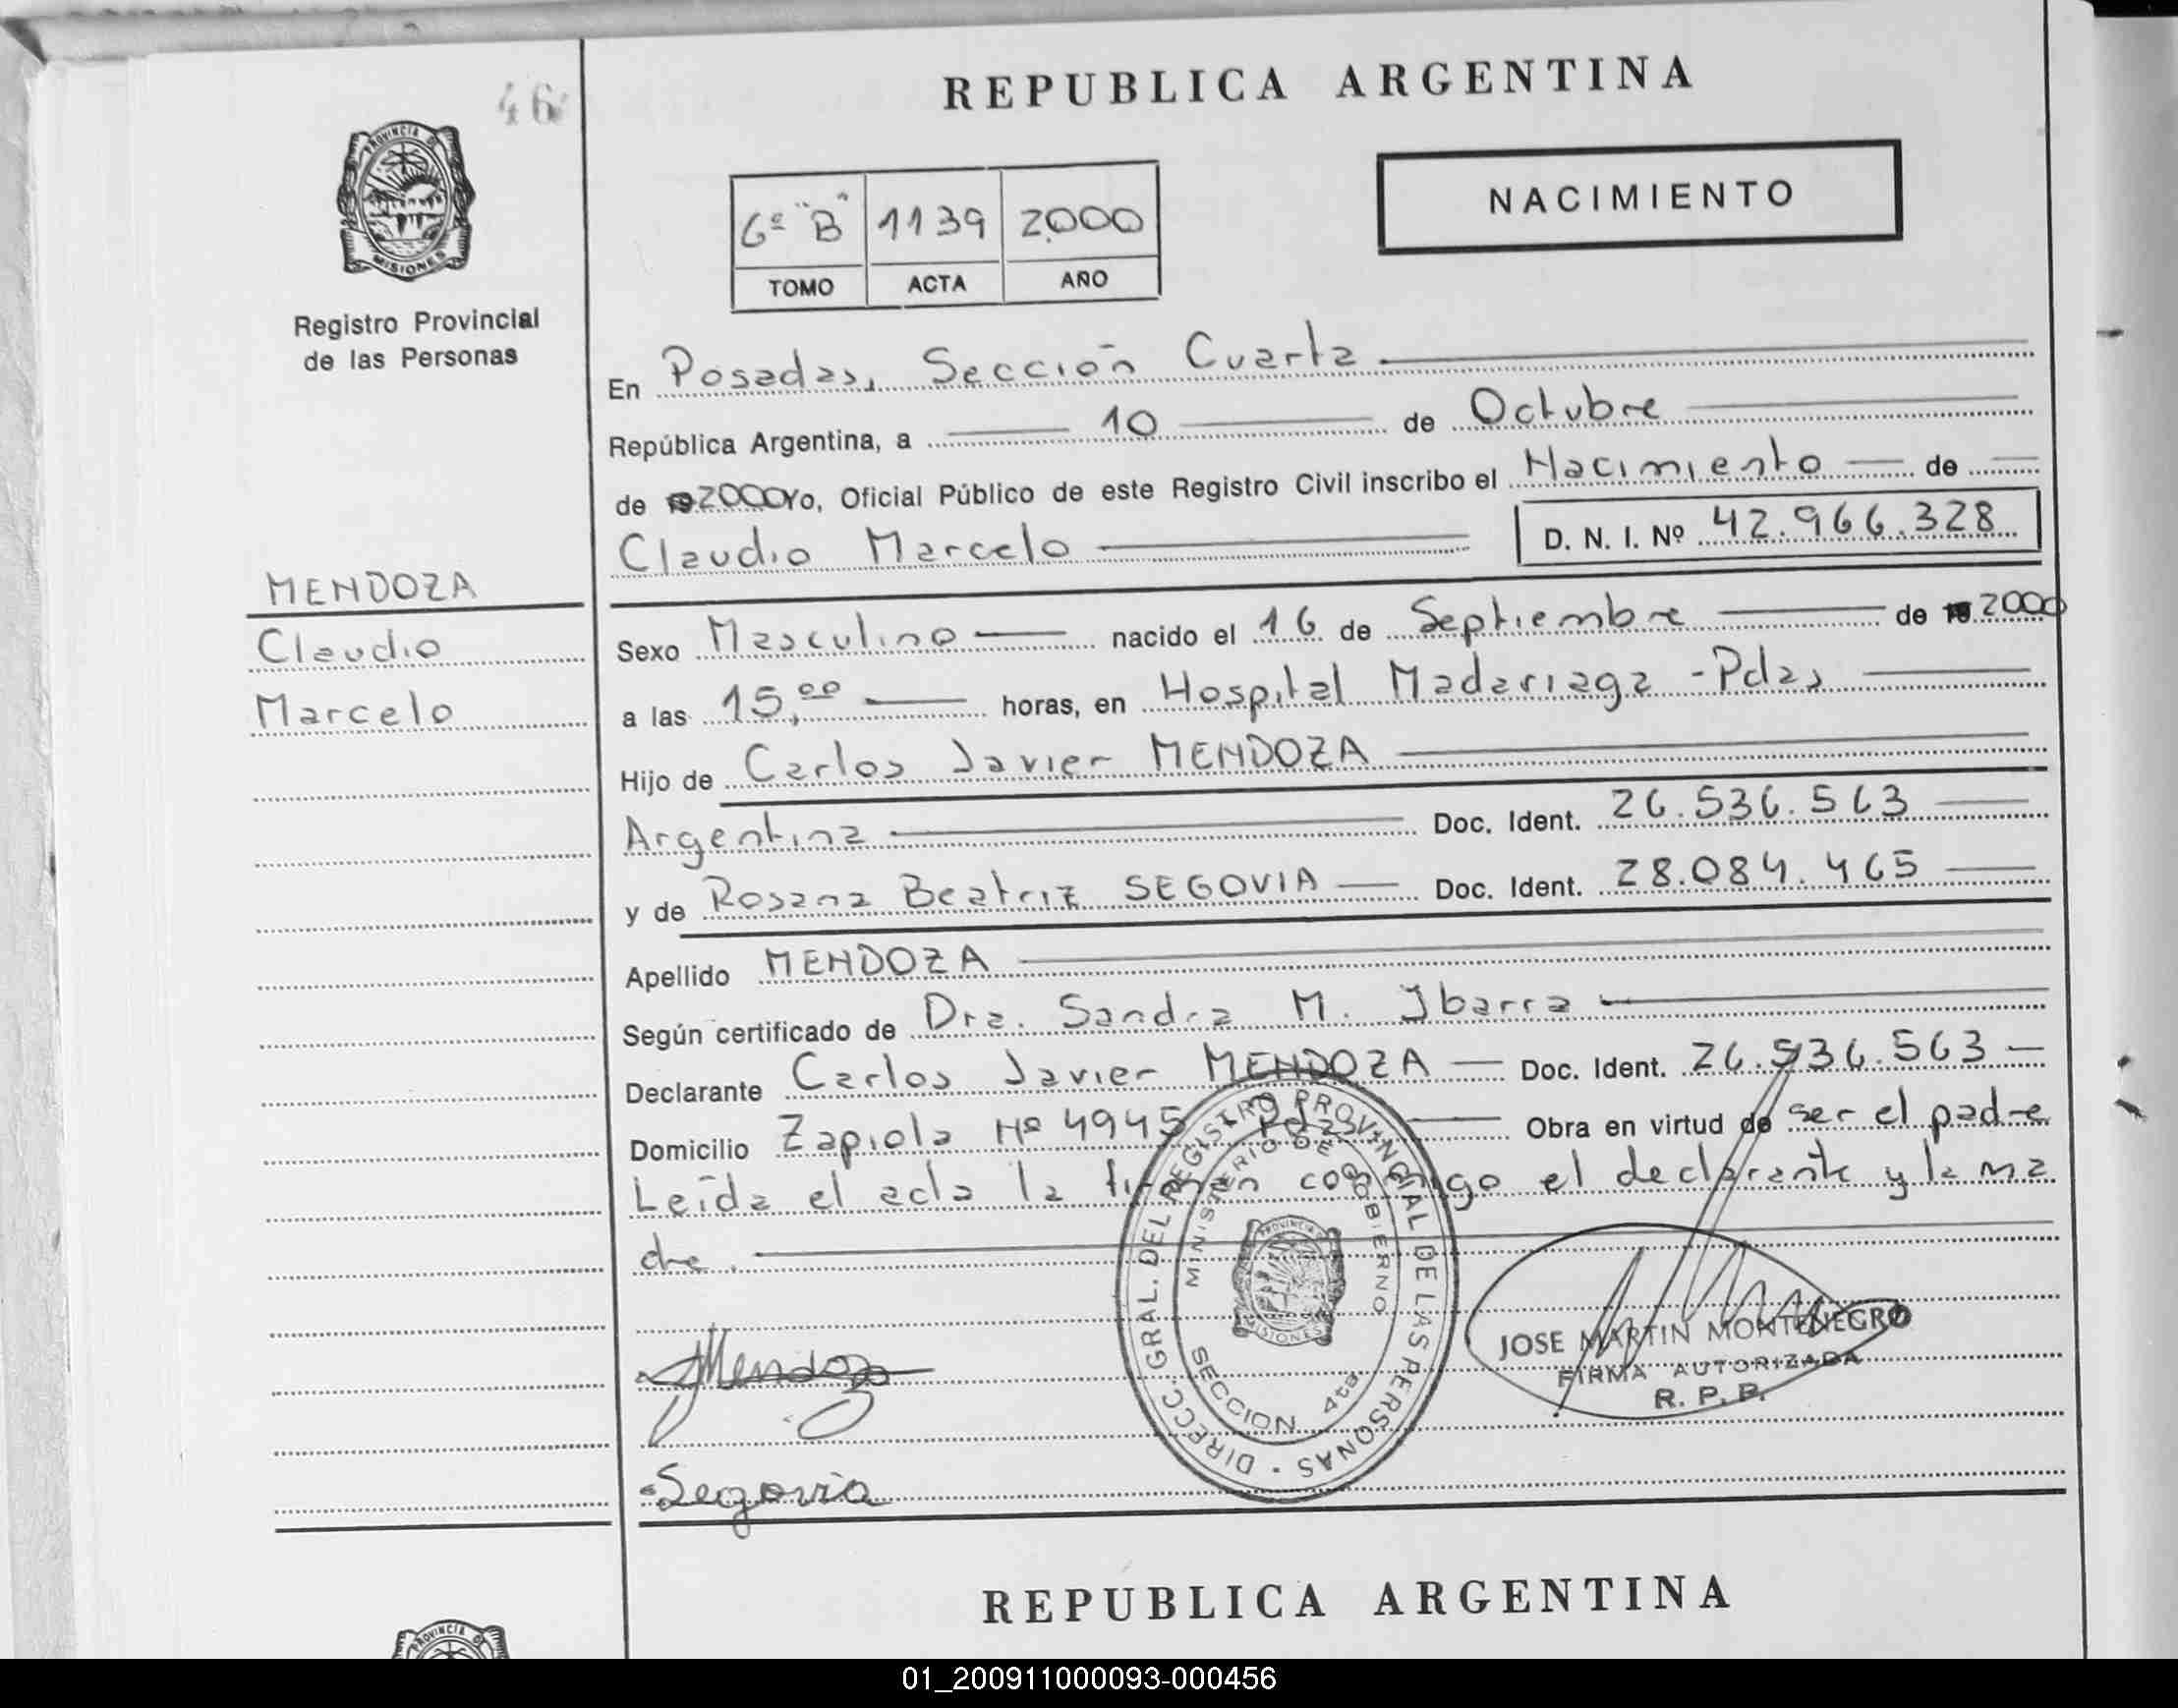 REPUBLICA ARGENTINA
46
PROVINCIA DE
MISIONES
Registro Provincial
de las Personas
NACIMIENTO
6º "B" 1139 2000
TOMO ACTA AÑO
En Posadas, Sección Cuarta
República Argentina, a 10 de Octubre
de 2000 Yo, Oficial Público de este Registro Civil inscribo el Nacimiento de
Claudio Marcelo D. N. I. Nº 42.966.328
MENDOZA
Claudio
Marcelo
Sexo Masculino nacido el 16 de Septiembre de 2000
a las 15,00 horas, en Hospital Madariaga - Pdas
Hijo de Carlos Javier MENDOZA
Argentina Doc. Ident. 26.536.563
y de Rosana Beatriz SEGOVIA Doc. Ident. 28.084.465
Apellido MENDOZA
Según certificado de Dra. Sandra M. Ibarra
Declarante Carlos Javier MENDOZA Doc. Ident. 26.536.563
Domicilio Zapiola Nº 4945 Pdas Obra en virtud de ser el padre
Leída el acta la firman conmigo el declarante y la ma
dre.
DIRECC. GRAL. DEL REGISTRO PROVINCIAL DE LAS PERSONAS
MINISTERIO DE GOBIERNO
PROVINCIA
MISIONES
SECCION 4ta
JOSE MARTIN MONTENEGRO
FIRMA AUTORIZADA
R. P. P.
Mendoza
Segovia
REPUBLICA ARGENTINA
PROVINCIA DE
01_200911000093-000456